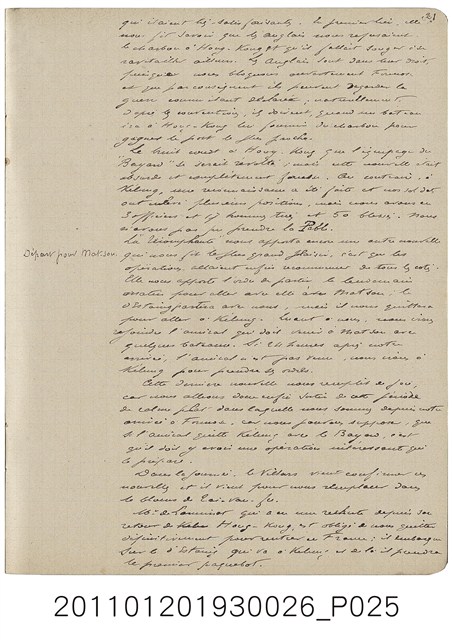 21
qui étaient très satisfaisants. En premier lieu, elle
nous fit savoir que les Anglais nous refusaient
le charbon à Hong-Kong et qu'il fallait songer à se
ravitailler ailleurs. Les Anglais sont dans leur droit,
puisque nous bloquons ouvertement Formose
et que par conséquent ils peuvent regarder la
guerre comme étant déclarée; naturellement
d'après les conventions, ils doivent, quand un bateau
ira à Hong-Kong lui fournir du charbon pour
gagner le port le plus proche.
Le bruit court à Hong-Kong que l'équipage du
"Bayard" se serait révolté; mais cette nouvelle était
absurde et complètement fausse. Au contraire, à
Kelung, une reconnaissance a été faite et nos soldats
ont enlevé plusieurs positions, mais nous avons eu
3 officiers et 17 hommes tués et 50 blessés. Nous
n'avons pas pu prendre la
La Triomphante nous apporte encore une autre nouvelle
Départ pour Matsou
qui nous fit le plus grand plaisir, c'est que les
opérations allaient enfin recommencer de tous les côtés.
Elle nous apporte l'ordre de partir le lendemain
matin pour aller avec elle à Matsou. Le
d'Estaing partira avec nous, mais il nous quittera
pour aller à Kelung. Quant à nous, nous irons
rejoindre l'amiral qui doit venir à Matsou avec
quelques bateaux. Si 24 heures après notre
arrivée, l'amiral n'est pas venu, nous irons à
Kelung pour prendre les ordres.
Cette dernière nouvelle nous remplit de joie,
car nous allions donc enfin sortir de cette période
de calme plat dans laquelle nous sommes depuis notre
arrivée à Formose, car nous pouvons supposer, que
si l'amiral quitte Kelung avec le Bayard, c'est
qu'il doit y avoir une opération intéressante qui
se prépare.
Dans la journée, le Villars vient confirmer ces
nouvelles et il vient pour nous remplacer dans
le blocus de Taï-wan-fu.
Mr de qui a eu une rechute depuis son
retour de Hong-Kong, est obligé de nous quitter
définitivement pour rentrer en France; il embarque
sur le d'Estaing qui va à Kelung et de là il prendra
le premier paquebot.
201101201930026_P025